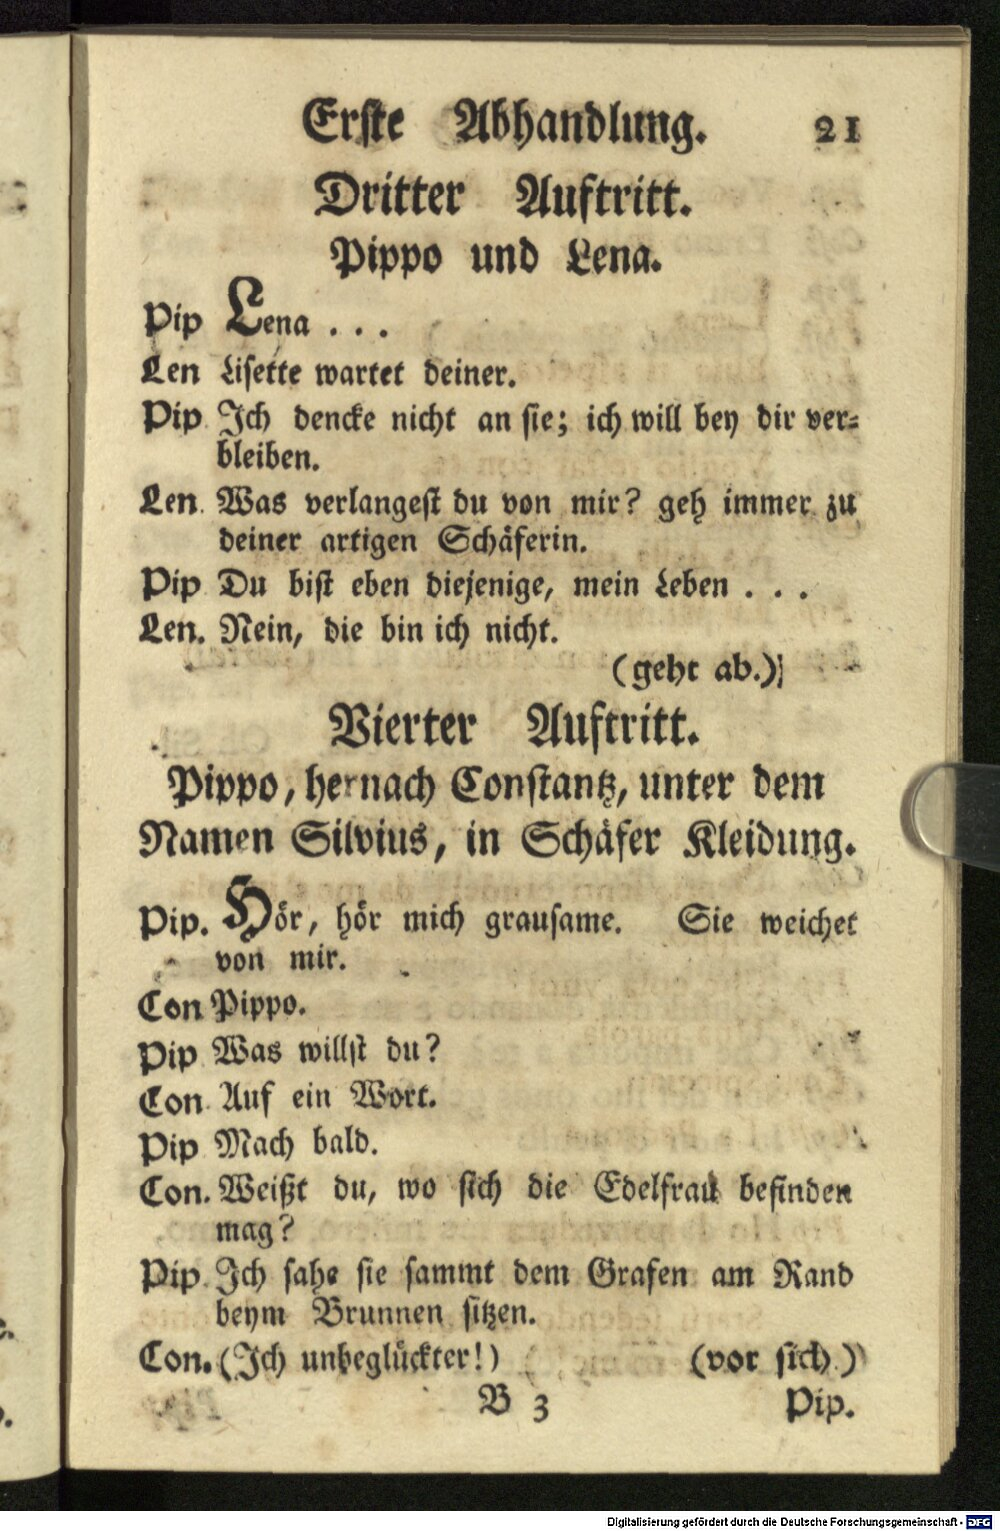 Erste Abhandlung. 21
Dritter Auftritt.
Pippo und Lena.
Pip Lena . . .
Len Lisette wartet deiner.
Pip Ich dencke nicht an sie; ich will bey dir ver-
bleiben.
Len. Was verlangest du von mir? geh immer zu
deiner artigen Schäferin.
Pip Du bist eben diejenige, mein Leben . . .
Len. Nein, die bin ich nicht.
(geht ab.)
Vierter Auftritt.
Pippo, hernach Constantz, unter dem
Namen Silvius, in Schäfer Kleidung.
Pip. Hör, hör mich grausame. Sie weichet
von mir.
Con Pippo.
Pip Was willst du?
Con Auf ein Wort.
Pip Mach bald.
Con. Weißt du, wo sich die Edelfrau befinden
mag?
Pip. Ich sahe sie sammt dem Grafen am Rand
beym Brunnen sitzen.
Con. (Ich unbeglückter!) (vor sich.)
B 3 Pip.
Digitalisierung gefördert durch die Deutsche Forschungsgemeinschaft - DFG